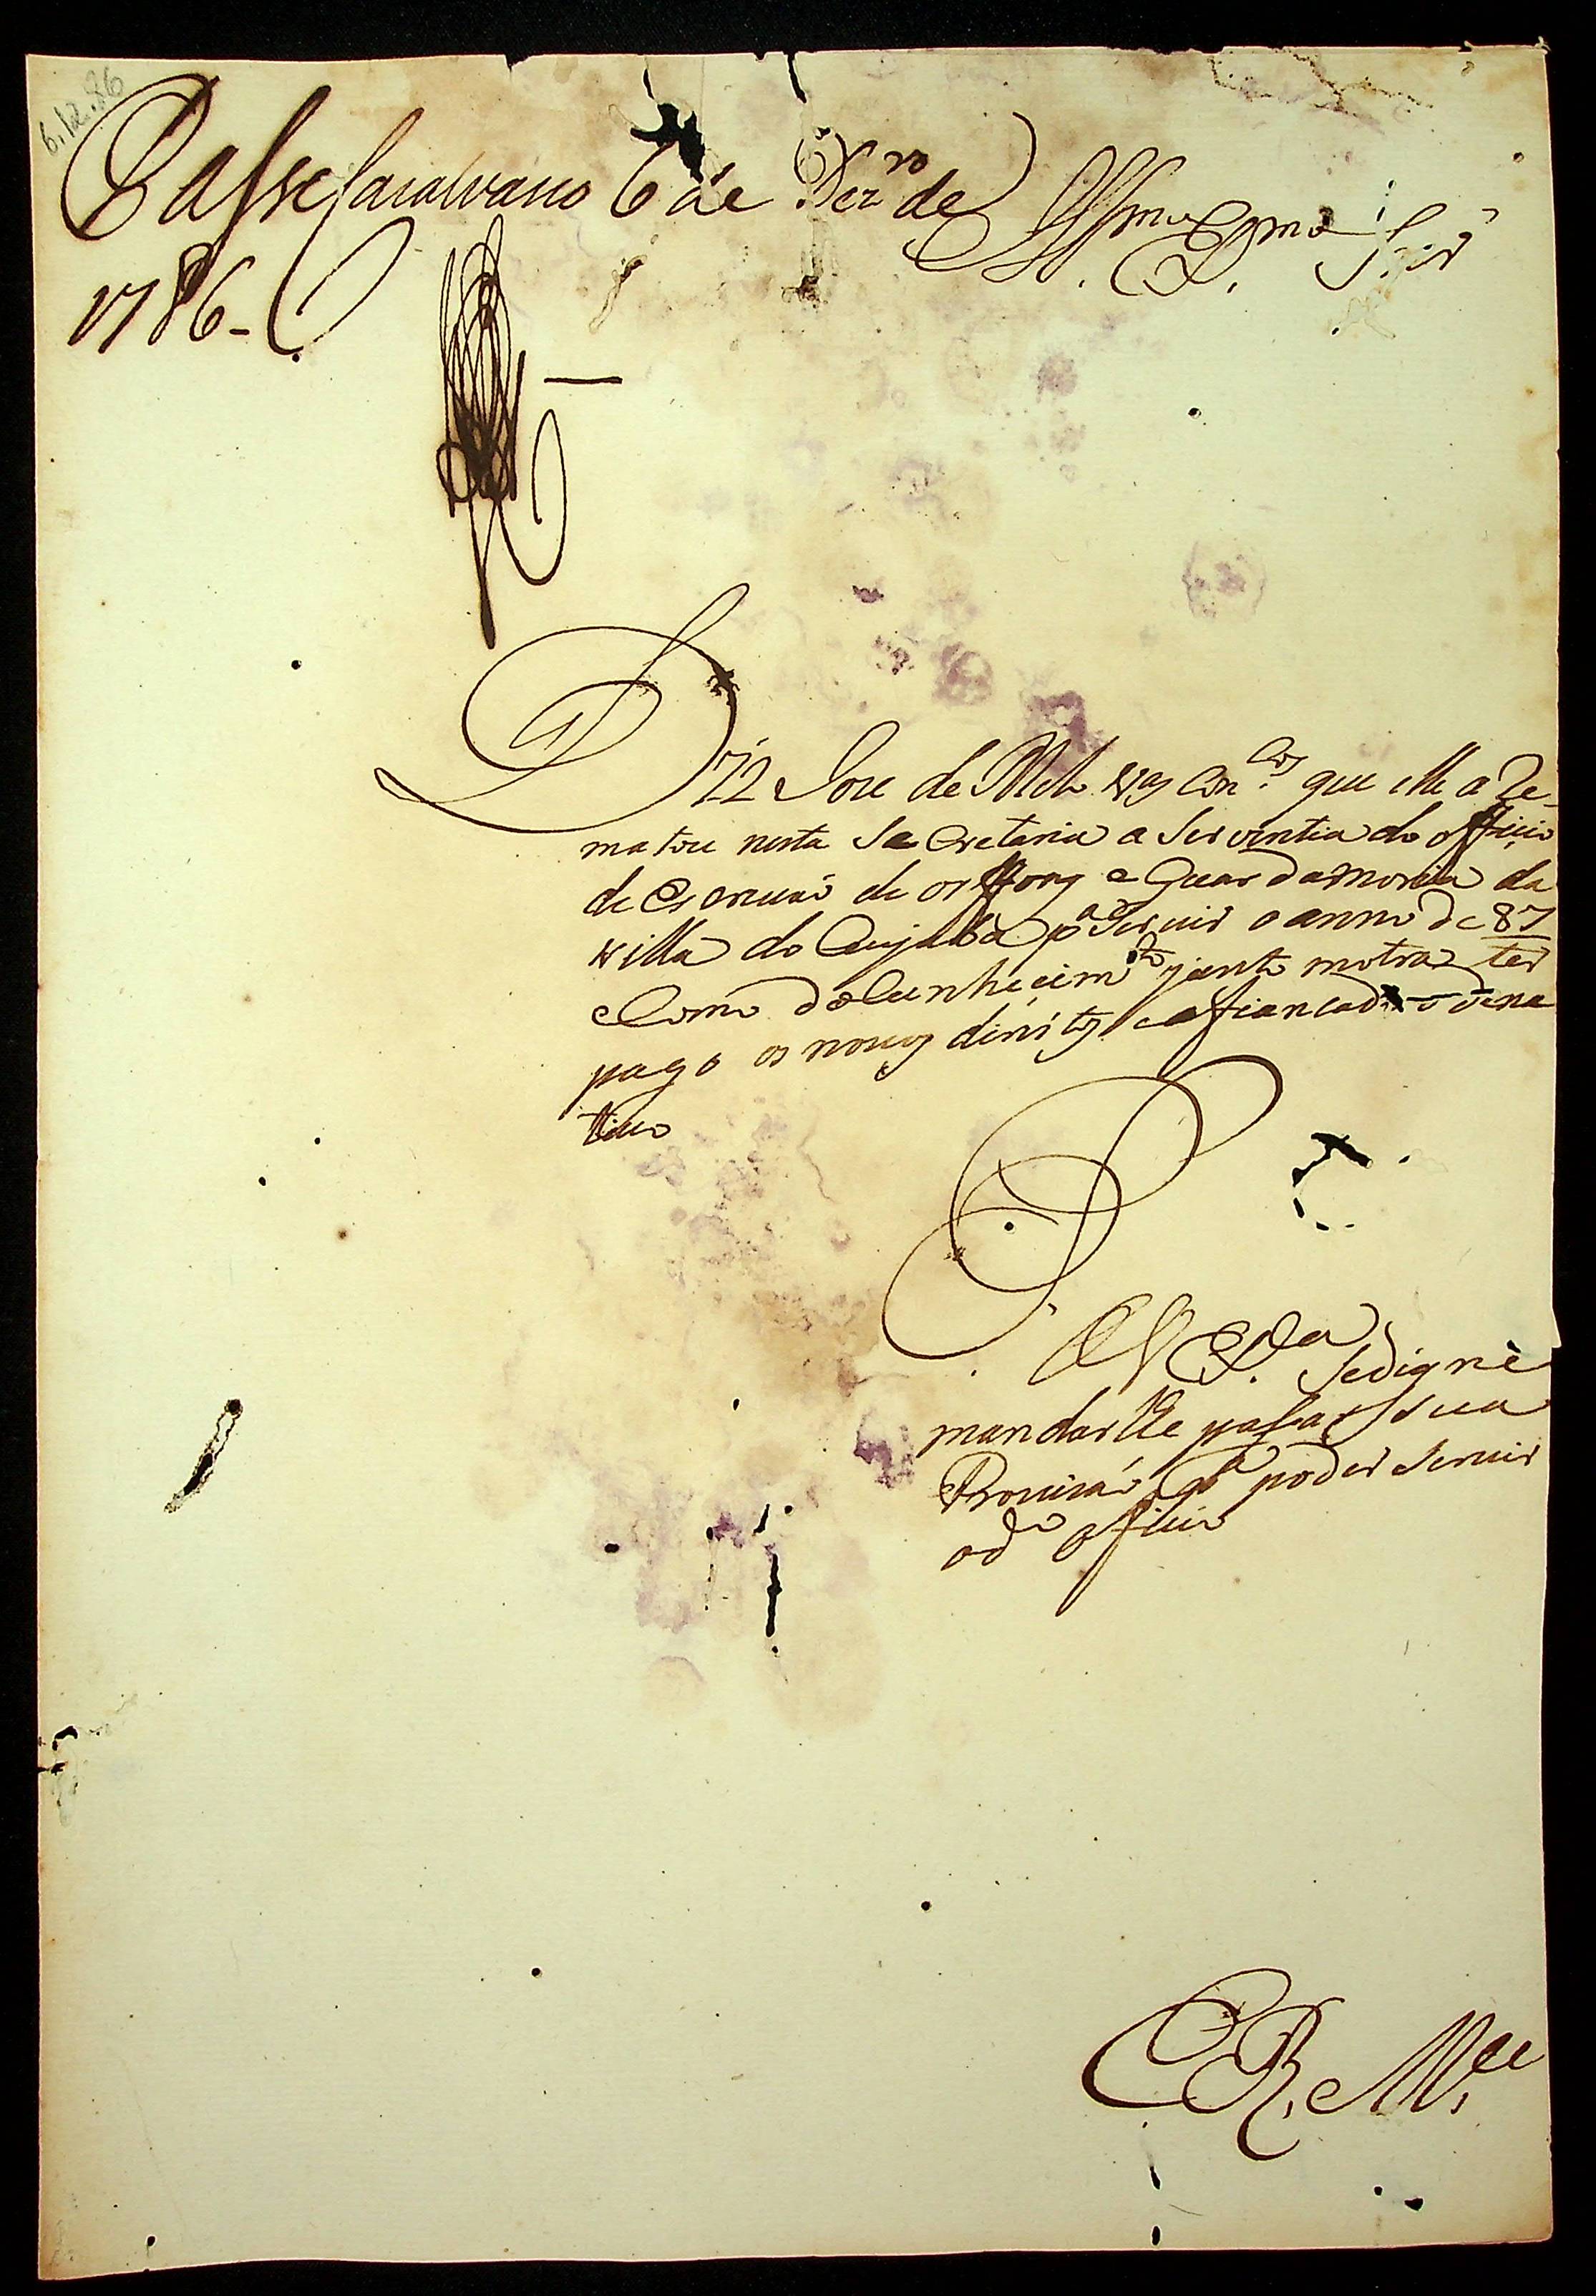 6.12.86
Passe Casalvasco 6 de Dezro de
1786-
Illmo e Exmo Snr
Diz Joze de Mello Vas Con.cos que elle a Re-
matou nesta Secretaria a Serventia do officio
de Escrivaó de orffons e Guardamoria da
villa do Cuyaba pa Servir o anno de 87
e Como do Cunhecimto junto mostra ter
pago os novos dirsitos e afiancado o dona
tivo
P.
A V Exa Se digne
mandarlle pasar Sua
Provizaó pa poder Servir
o do oficio
E R. Mce